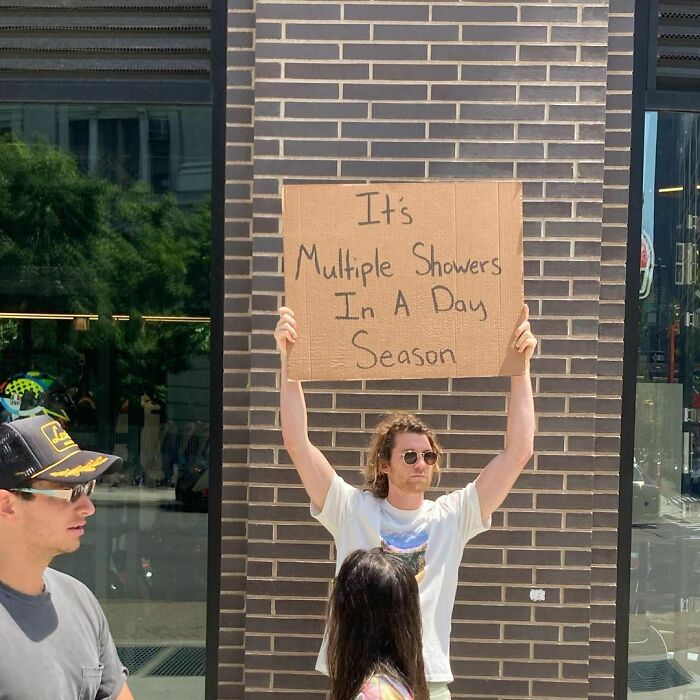 It's
Multiple Showers
In A Day
Season